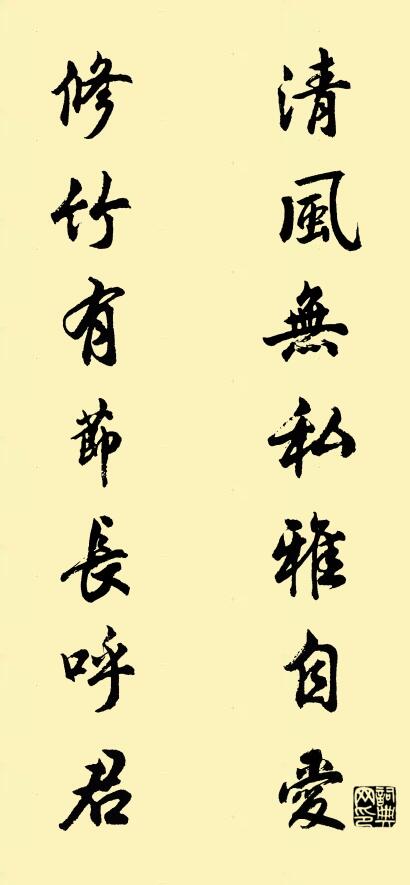 清風無私雅自愛
修竹有節長呼君
詞典網印